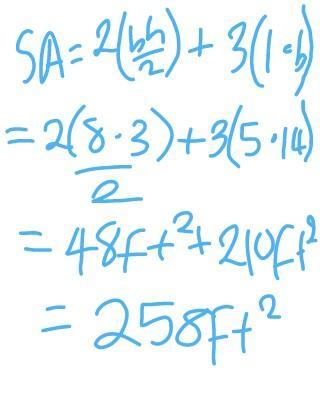 SA = 2(bh/2) + 3(l · b)
= 2(8 · 3)/2 + 3(5 · 14)
= 48ft² + 210ft²
= 258ft²